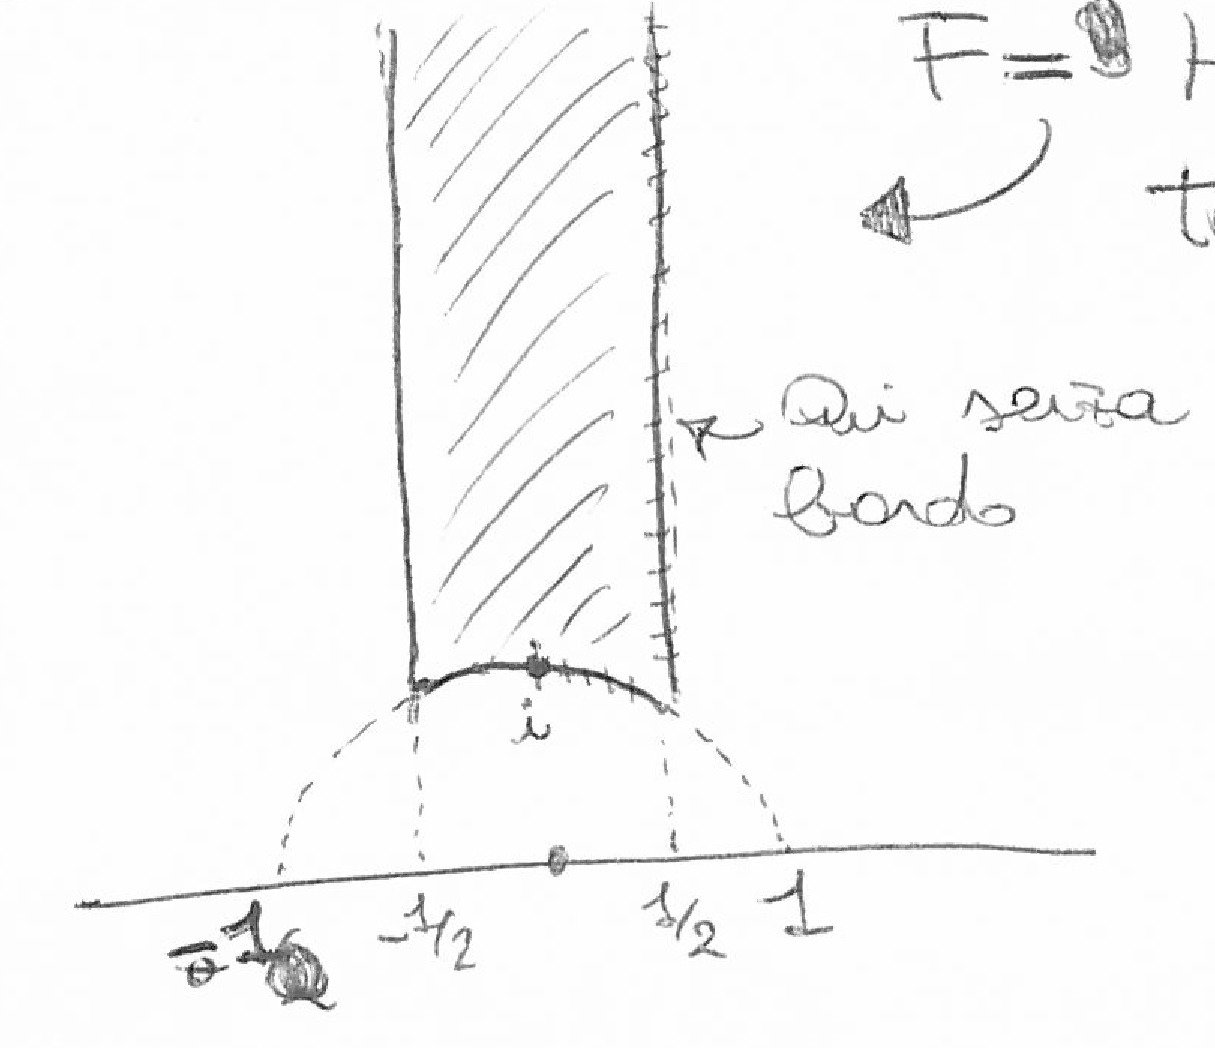 F = H
Qui senza
bordo
i
-1
-1/2
1/2
1